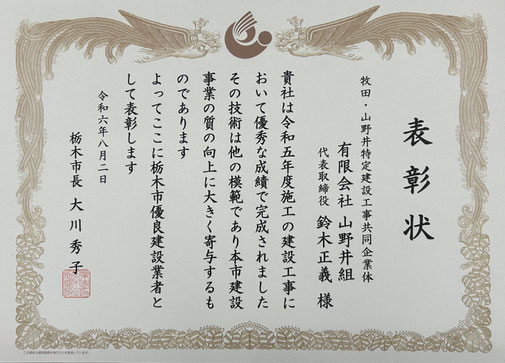 表彰状
牧田・山野井特定建設工事共同企業体
有限会社 山野井組
代表取締役 鈴木正義 様
貴社は令和五年度施工の建設工事に
おいて優秀な成績で完成されました
その技術は他の模範であり本市建設
事業の質の向上に大きく寄与するも
のであります
よってここに栃木市優良建設業者と
して表彰します
令和六年八月二日
栃木市長 大川秀子